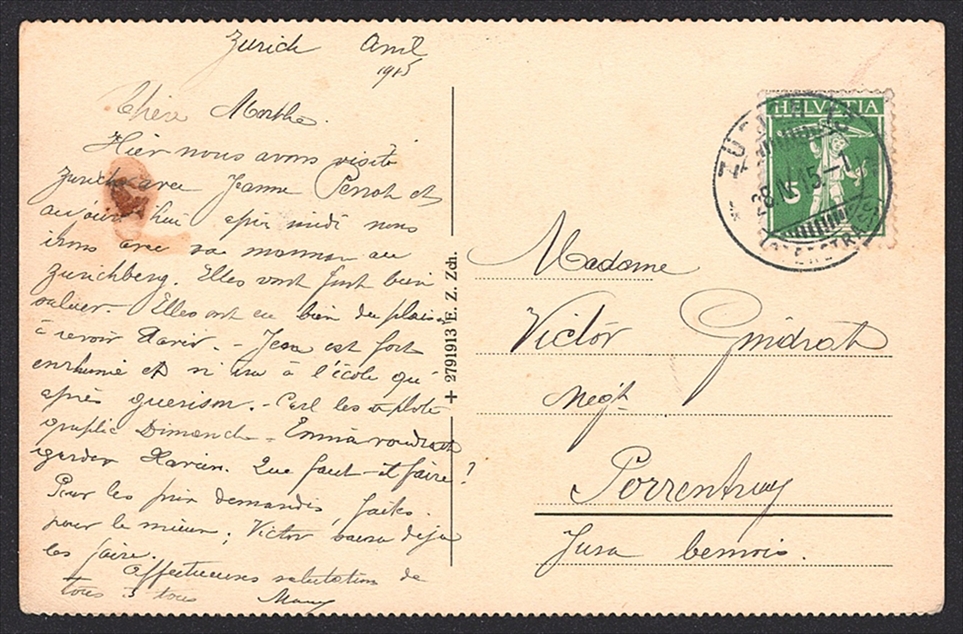 Zurich Avril
1915
Chère Marthe.
Hier nous avons visité
Zurich avec Jeanne Perrot et
aujourd'hui après midi nous
irons avec sa maman au
Zurichberg. Elles vont fort bien
saluer. Elles ont eu bien du plaisir
à revoir Xavier. - Jean est fort
enrhumé et n'ira à l'école qu'
après guérison. - Carl les a photo
graphié Dimanche - Emma voudrait
garder Xavier. Que faut-il faire?
Pour les prix demandés, faites
pour le mieux; Victor saura déjà
les faire.
Affectueuses salutation de
tous à tous Mary
+ 2791913 E. Z. Zch.
HELVETIA
5
28.IV.15
Madame
Victor Gindrat
Négt
Porrentruy
Jura bernois.